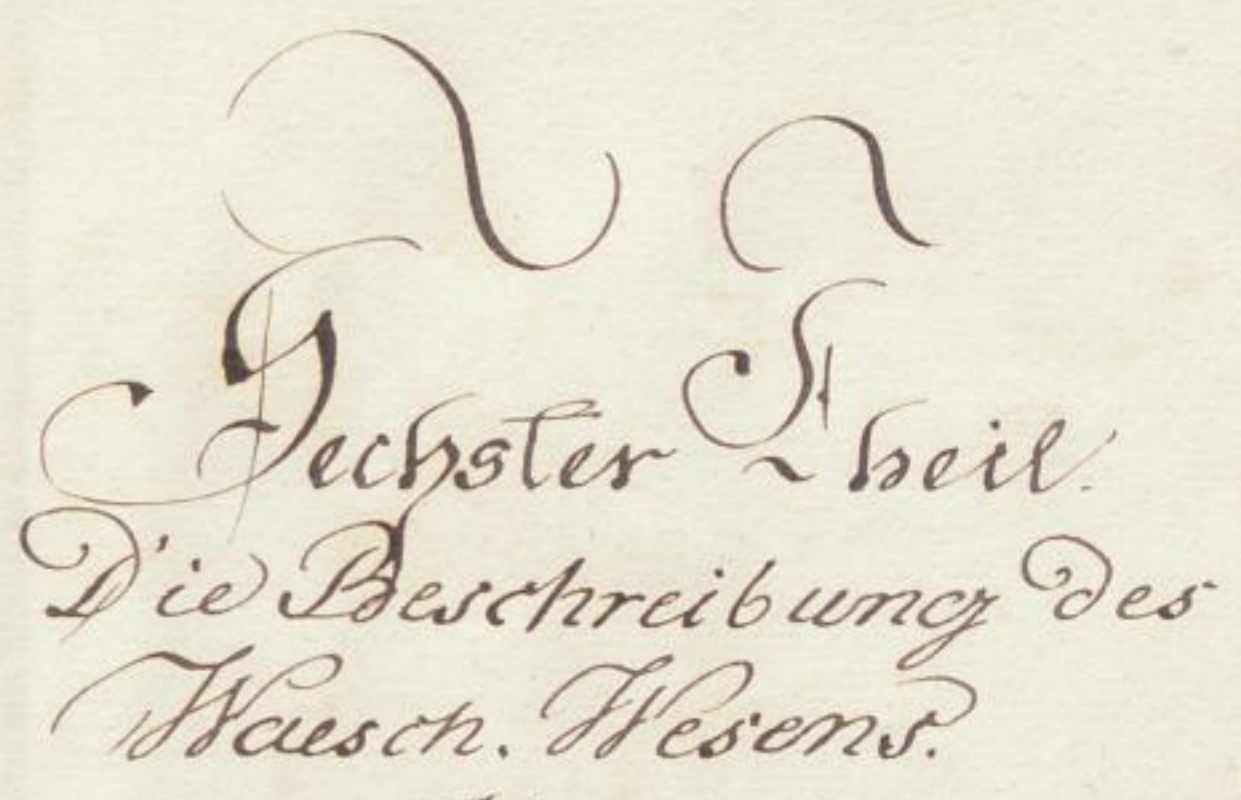 Sechster Theil.
Die Beschreibung des
Waesch. Wesens.